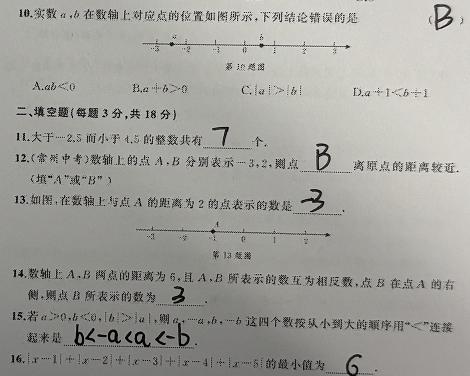 10.实数 a,b 在数轴上对应点的位置如图所示,下列结论错误的是 (B)
a b
-3 -2 -1 0 1 2 3
第 10 题图
A.ab<0 B.a+b>0 C.|a|>|b| D.a+1<b+1
二、填空题(每题 3 分,共 18 分)
11.大于-2.5 而小于 4.5 的整数共有 7 个.
12.(常州中考)数轴上的点 A,B 分别表示-3,2,则点 B 离原点的距离较近.
(填“A”或“B”)
13.如图,在数轴上与点 A 的距离为 2 的点表示的数是 -3 .
A
-3 -2 -1 0 1 2
第 13 题图
14.数轴上 A,B 两点的距离为 6,且 A,B 所表示的数互为相反数,点 B 在点 A 的右
侧,则点 B 所表示的数为 3 .
15.若 a>0,b<0,|b|>|a|,则 a,-a,b,-b 这四个数按从小到大的顺序用“<”连接
起来是 b<-a<a<-b .
16.|x-1|+|x-2|+|x-3|+|x-4|+|x-5|的最小值为 6 .